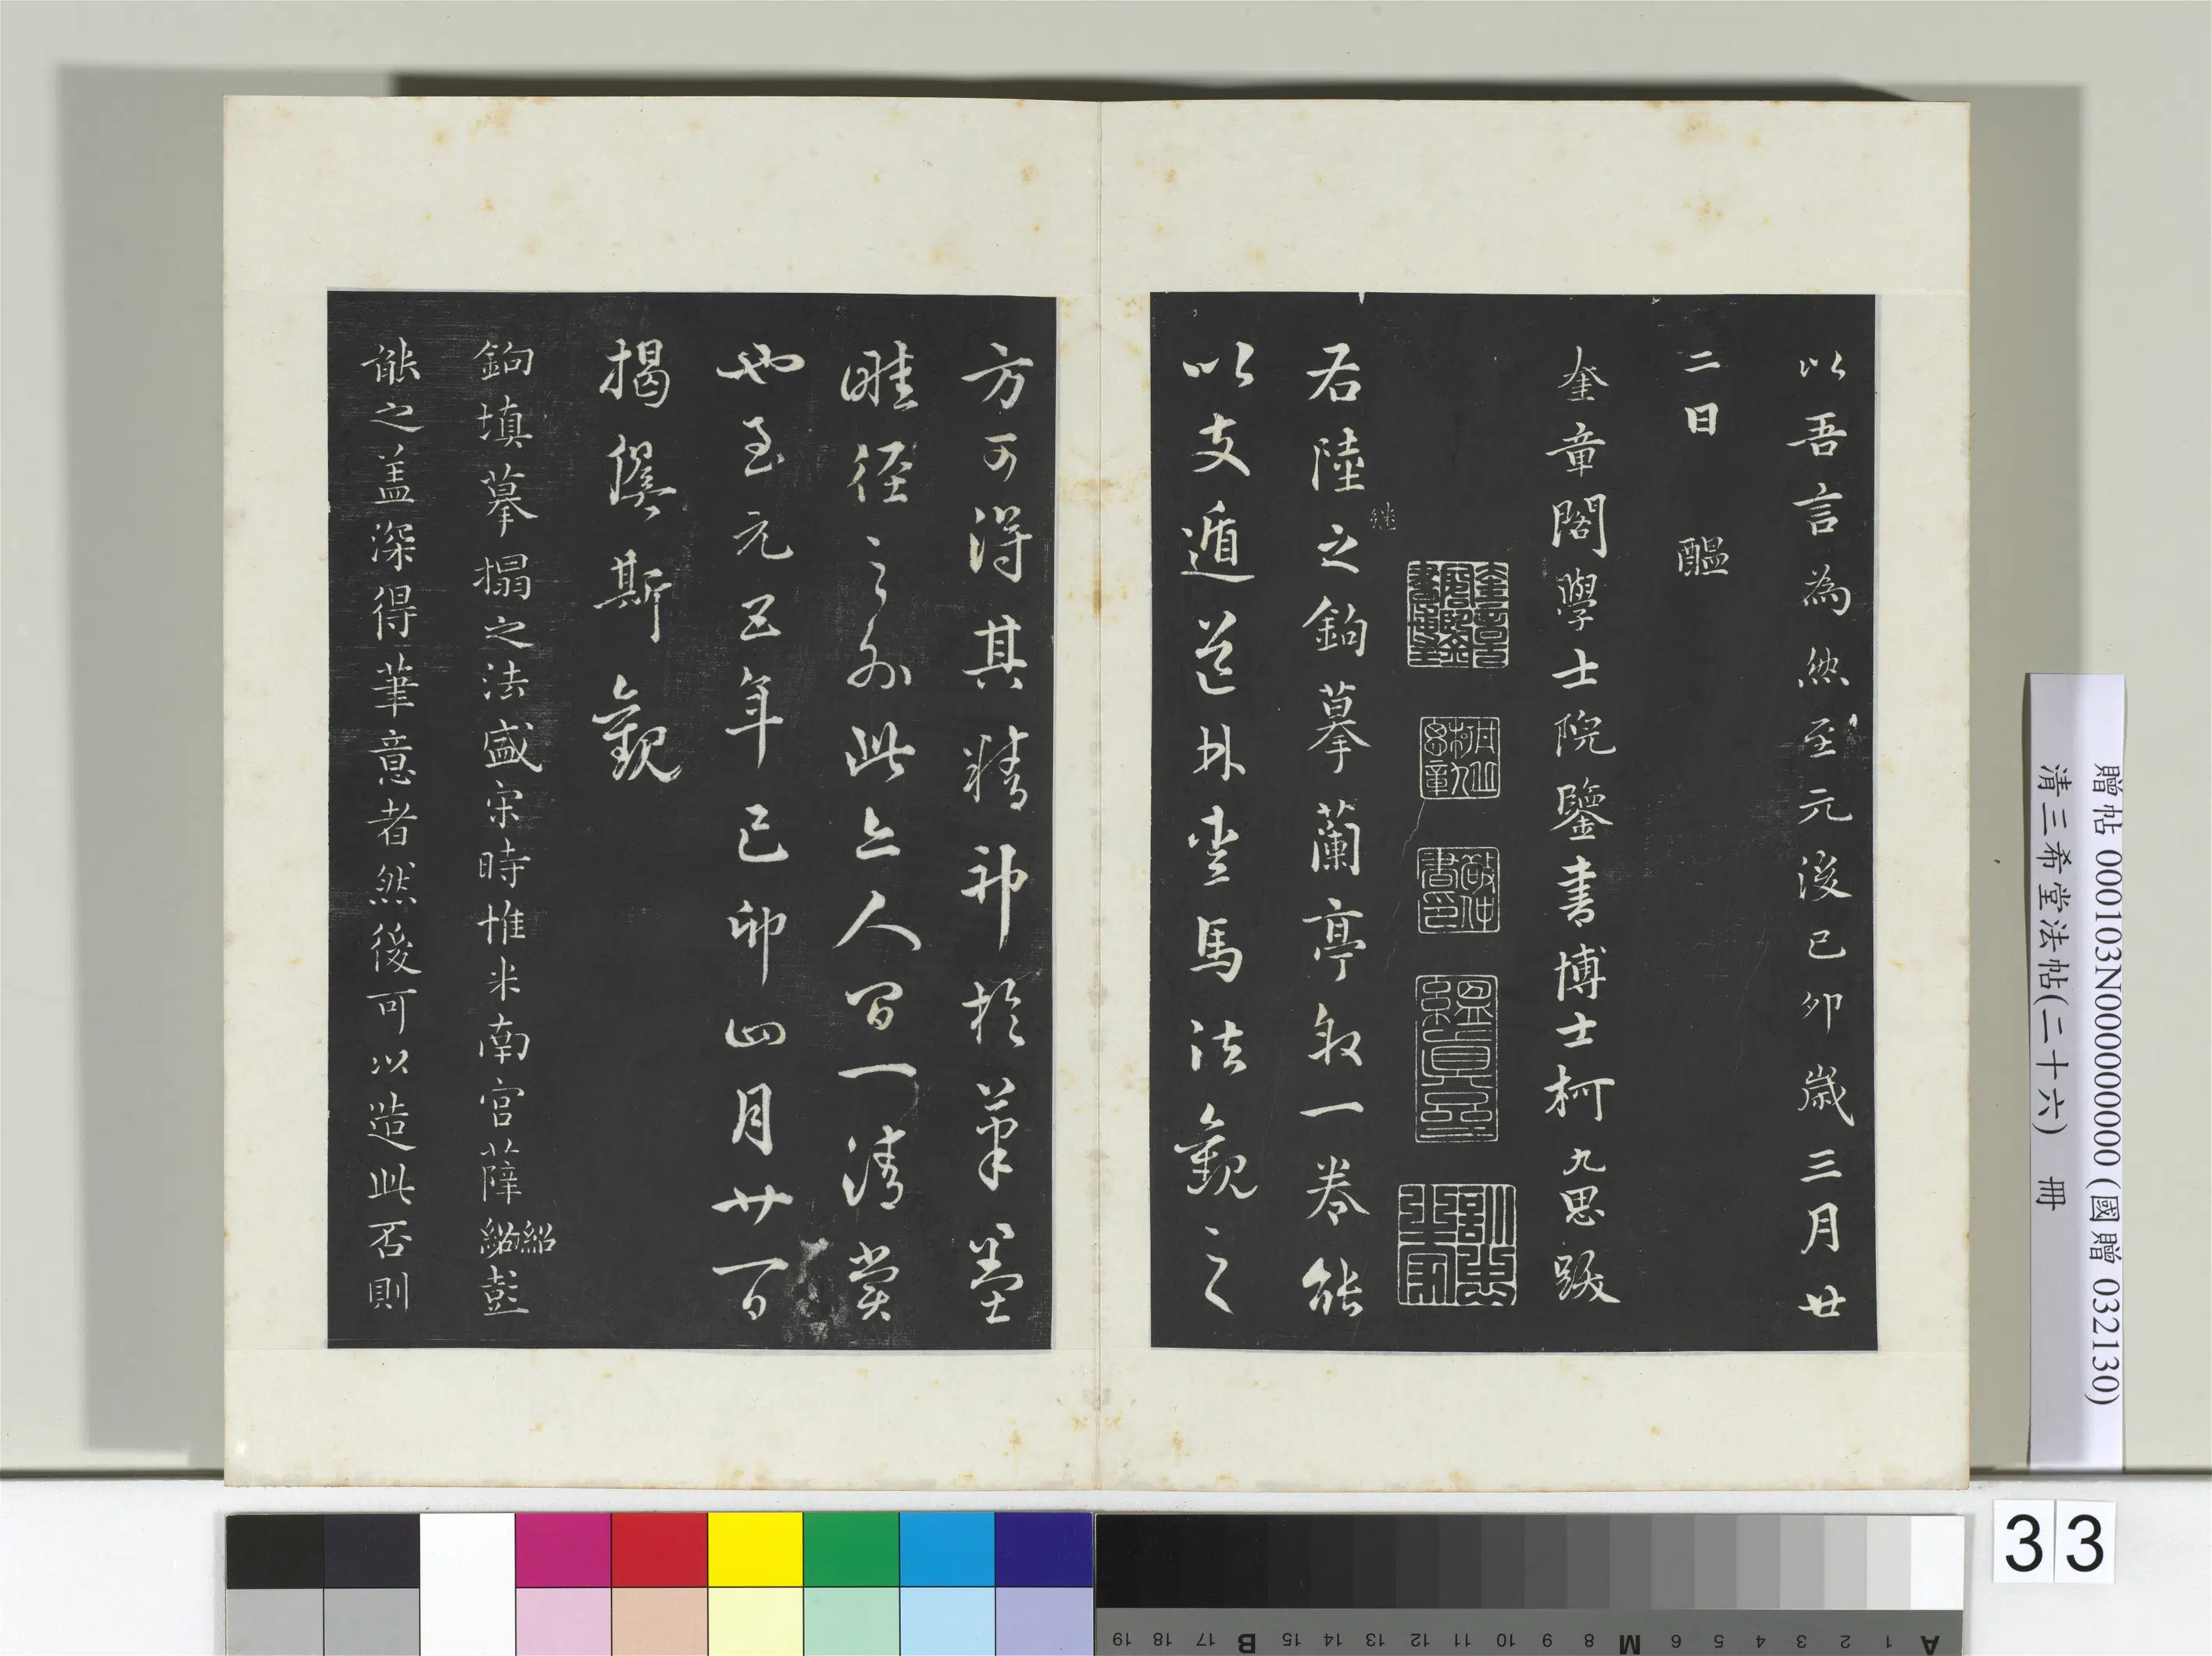 以吾言為然至元後己卯歲三月廿
二日 醞
奎章閣學士院鑒書博士柯九思跋
奎章閣鑒書博士
柯九思敬仲
敬仲書印
縕真齋
訓忠之家
右陸繼之鉤摹蘭亭叙一卷能
以支遁道林愛馬法觀之
方可得其精神於筆墨
畦徑之外此亦人間一清賞
也至元五年己卯四月廿一日
揭傒斯觀
鉤填摹搨之法盛宋時惟米南宮薛紹彭
能之蓋深得筆意者然後可以造此否則
贈帖 000103N000000000 (國贈 032130)
清三希堂法帖(二十六) 冊
33
A 1 2 3 4 5 6 M 8 9 10 11 12 13 14 15 B 17 18 19